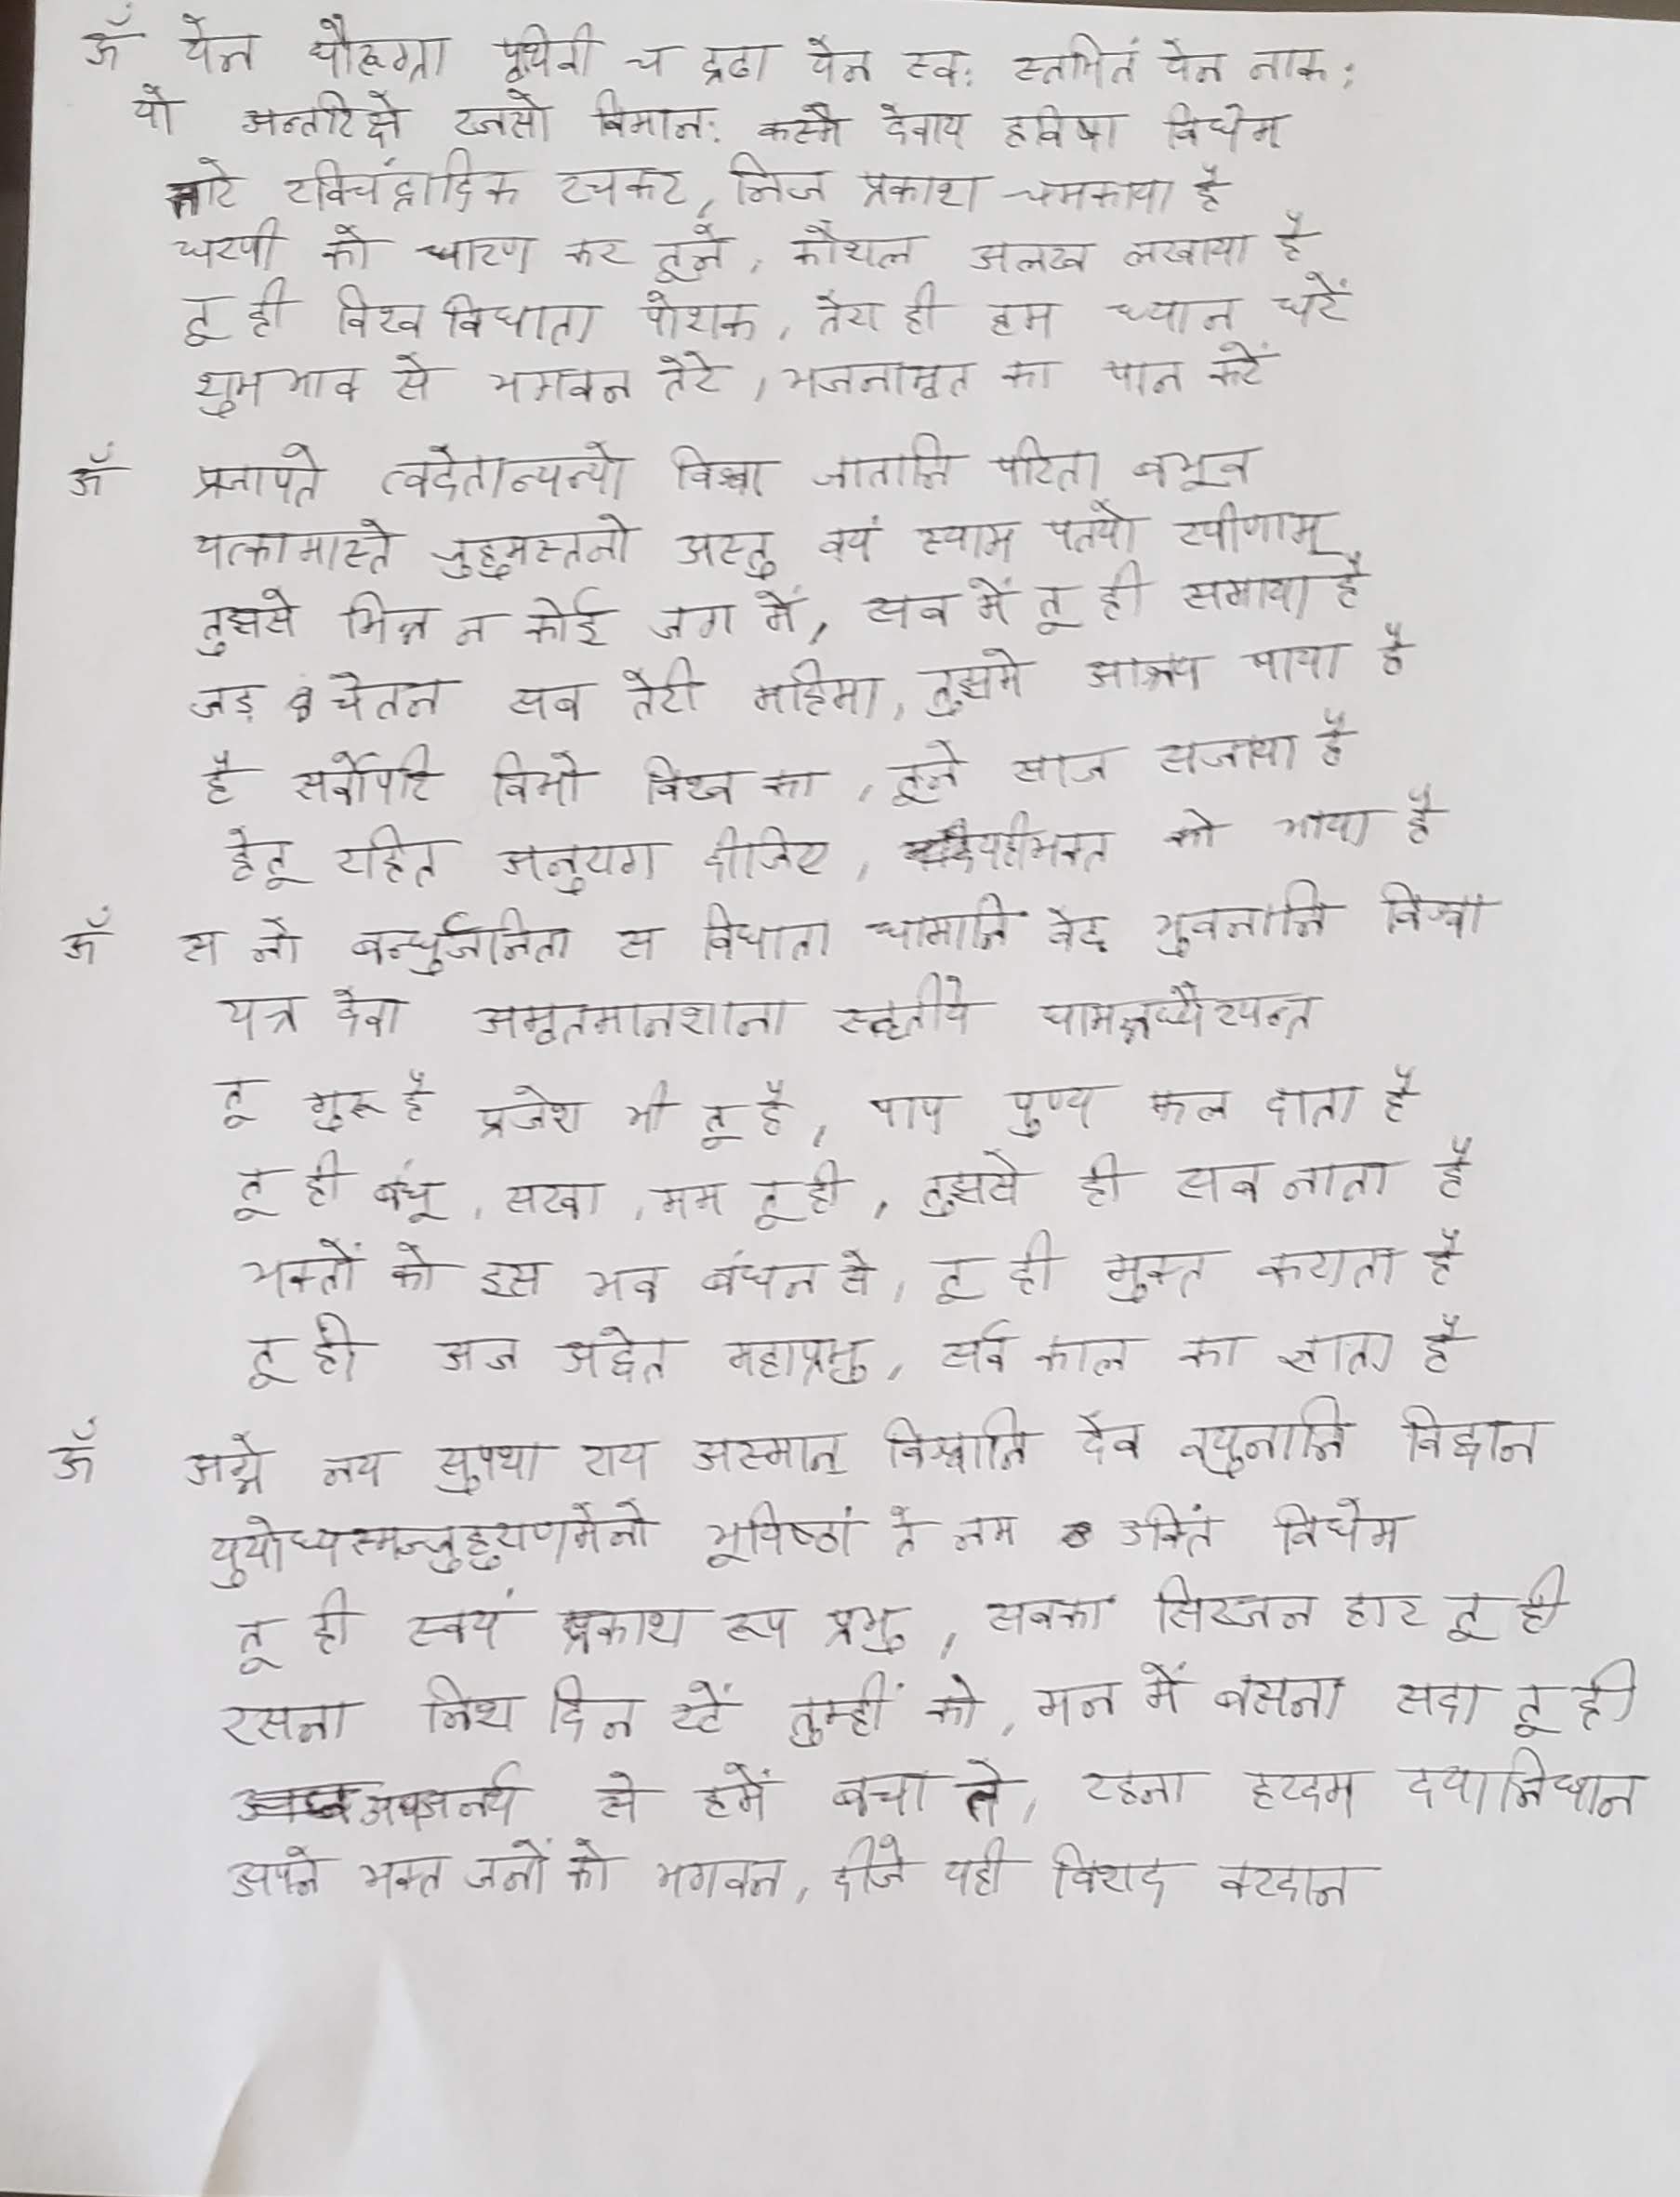 ॐ येन द्यौरुग्रा पृथिवी च द्रढा येन स्व: स्तभितं येन नाक:
यो अन्तरिक्षे रजसो विमान: कस्मै देवाय हविषा विधेम
तारे रविचंद्रादिक रचकर, निज प्रकाश चमकाया है
धरणी को धारण कर तूने, कौशल अलख लखाया है
तू ही विश्व विधाता पोशक, तेरा ही हम ध्यान धरें
शुभभाव से भगवन तेरे, भजनामृत का पान करें
ॐ प्रजापते त्वदेतान्यन्यो विश्वा जातानि परिता बभूव
यत्कामास्ते जुहुमस्तनो अस्तु वयं स्याम पतयो रयीणाम्
तुझसे भिन्न न कोई जग में, सब में तू ही समाया है
जड़ चेतन सब तेरी महिमा, तुझमे आश्रय पाया है
है सर्वोपरि विभो विश्व का, तूने साज सजाया है
हेतू रहित अनुराग दीजिए, यही भक्त को भाया है
ॐ स नो बन्धुर्जनिता स विधाता धामानि वेद भुवनानि विश्वा
यत्र देवा अमृतमानशाना स्तृतीये धामन्नध्यैरयन्त
तू गुरू है प्रजेश भी तू है, पाप पुण्य फल दाता है
तू ही बंधू, सखा, मम तू ही, तुझसे ही सब नाता है
भक्तों को इस भव बंधन से, तू ही मुक्त कराता है
तू ही अज अद्वेत महाप्रभु, सर्व काल का ज्ञाता है
ॐ अग्ने नय सुपथा राय अस्मान् विश्वानि देव वयुनानि विद्वान
युयोध्यस्मज्जुहुराणमेनो भूयिष्ठां ते नम उक्तिं विधेम
तू ही स्वयं प्रकाश रूप प्रभु, सबका सिरजन हार तू ही
रसना निश दिन रटें तुम्हीं को, मन में बसना सदा तू ही
से हमें बचा ते, रहना हरदम दयानिधान
अपने भक्त जनों को भगवन, दीजे यही विशद वरदान